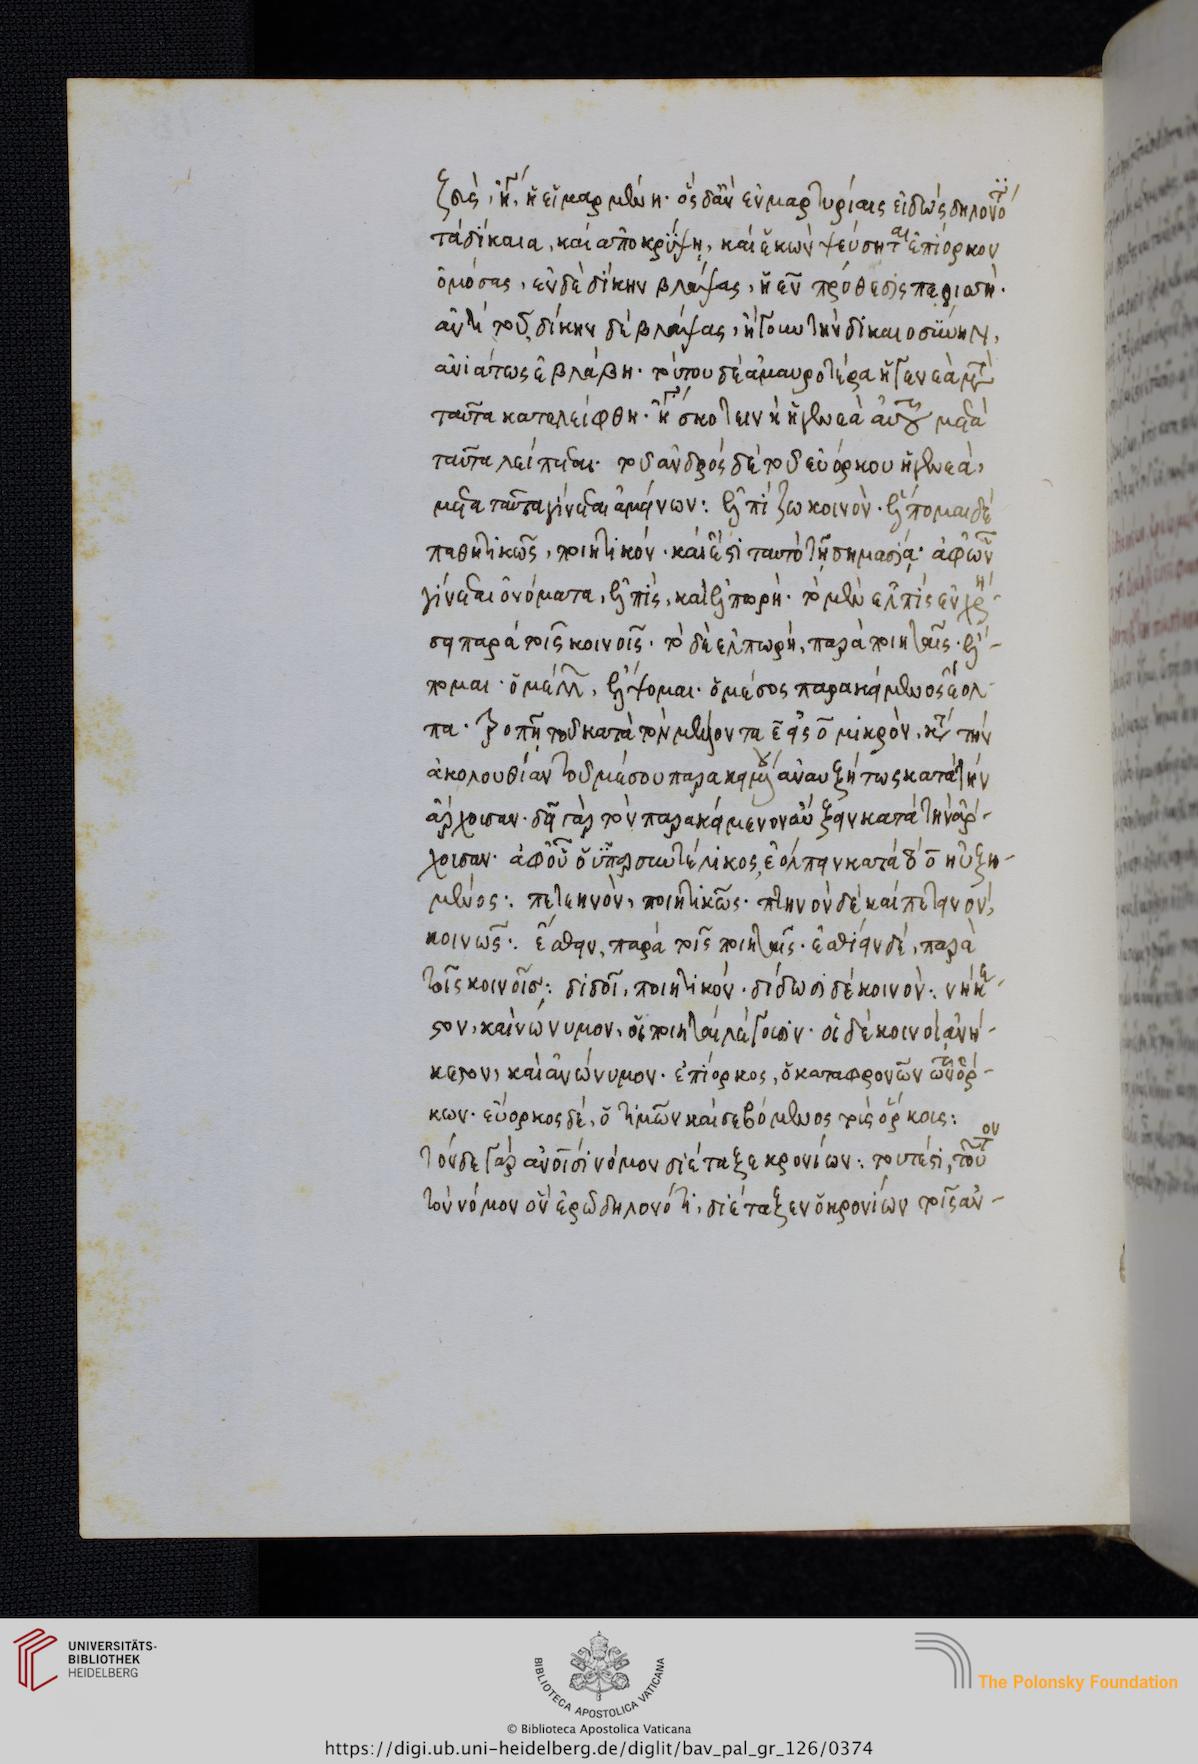 ζεὺς, ἤγουν ἡ εἱμαρμένη· ὃς δ' ἂν ἐν μαρτυρίαις εἰδὼς δηλονότι
τὰ δίκαια, καὶ ἀποκρύψῃ, καὶ ἑκὼν ψεύσηται ἐπίορκον
ὀμόσας, ἐν δὲ δίκην βλάψας, ἡ ἐν πρόθεσις περισσή·
ἀντὶ τοῦ, δίκην δὲ βλάψας, ἤγουν τὴν δικαιοσύνην,
ἀνιάτως ἐβλάβη· τούτου δὲ ἀμαυροτέρα ἡ γενεὰ μετὰ
ταῦτα κατελείφθη· ἤγουν σκοτεινὴ ἡ γενεὰ αὐτοῦ μετὰ
ταῦτα λείπεται· τοῦ ἀνδρὸς δὲ τοῦ εὐόρκου ἡ γενεὰ,
μετὰ ταῦτα γίνεται ἀμείνων: ἐλπίζω κοινὸν· ἔλπομαι δὲ
παθητικῶς, ποιητικόν· καὶ ἔστι ταυτὸ τῇ σημασίᾳ· ἀφ' ὧν
γίνεται ὀνόματα, ἐλπὶς, καὶ ἐλπωρή· τὸ μὲν ἐλπὶς ἐν χρή-
σει παρὰ τοῖς κοινοῖς· τὸ δὲ ἐλπωρή, παρὰ ποιηταῖς· ἔλ-
πομαι· ὁ μέλλων, ἔλψομαι· ὁ μέσος παρακείμενος ἔολ-
πα·
ἀκολουθίαν τοῦ μέσου παρακειμένου ἀναυξήτως κατὰ τὴν
ἄρχουσαν· δεῖ γὰρ τὸν παρακείμενον αὔξειν κατὰ τὴν ἄρ-
χουσαν· ἀφ' οὗ ὁ ὑπερσυντέλικος, ἐόλπειν κατὰ τὸ ο ηὐξη-
μένος: πετεηνὸν, ποιητικῶς· πτηνὸν δὲ καὶ πετεινὸν,
κοινῶς: ἔσθειν, παρὰ τοῖς ποιηταῖς· ἐσθίειν δὲ, παρὰ
τοῖς κοινοῖς: διδοῖ, ποιητικόν· δίδωσι δὲ κοινὸν: νήκε-
στον, καὶ νώνυμον, οἱ ποιηταὶ λέγουσιν· οἱ δὲ κοινοὶ ἀνή-
κεστον, καὶ ἀνώνυμον· ἐπίορκος, ὁ καταφρονῶν τῶν ὅρ-
κων· εὔορκος δὲ, ὁ τιμῶν καὶ σεβόμενος τοὺς ὅρκους:
τόνδε γὰρ ἀνθρώποισι νόμον διέταξε κρονίων: τουτέστι, τοῦτον
τὸν νόμον ὃν ἐρῶ δηλονότι, διέταξεν ὁ κρονίων τοῖς ἀν-
UNIVERSITÄTS-
BIBLIOTHEK
HEIDELBERG
BIBLIOTECA APOSTOLICA VATICANA
The Polonsky Foundation
© Biblioteca Apostolica Vaticana
https://digi.ub.uni-heidelberg.de/diglit/bav_pal_gr_126/0374